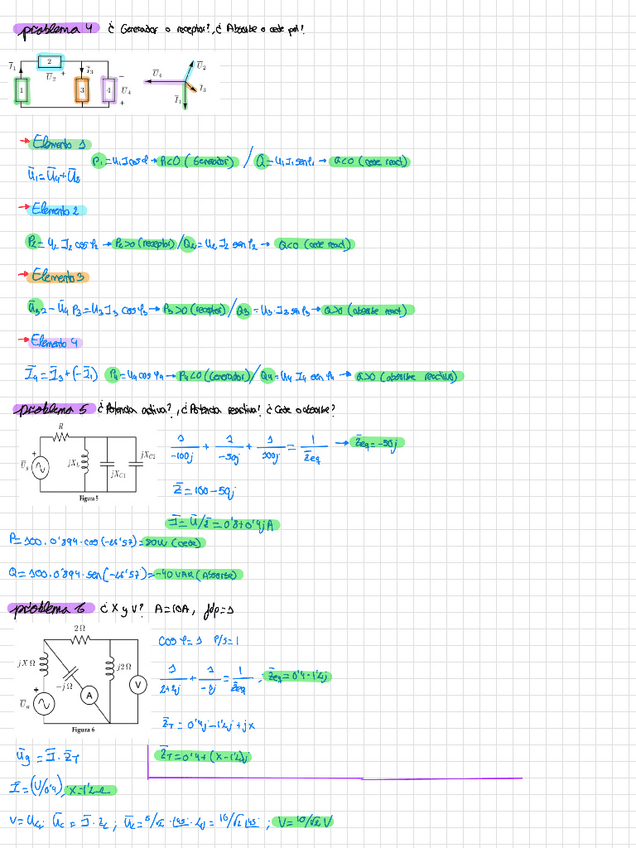 problema 4 ¿ Generador o receptor?, ¿ Absorbe o cede pot?
I̅₁ 2 U̅₂ + I̅₃ − U̅₄ + 1 3 4
U̅₄ U̅₂ I̅₃ I̅₁
→ Elemento 1
P₁ = U₁ I cos φ → P₁<0 (Generador) / Q = U₁ I₁ sen φ₁ → Q<0 (cede react)
U̅₁ = U̅₄ + U̅₂
→ Elemento 2
P₂ = U₂ I₂ cos φ₂ → P₂>0 (receptor) / Q₂ = U₂ I₂ sen φ₂ → Q<0 (cede react)
→ Elemento 3
U̅₃ = − U̅₄ P₃ = U₃ I₃ cos φ₃ → P₃>0 (receptor) / Q₃ = U₃ · I₃ sen φ₃ → Q>0 (absorbe react)
→ Elemento 4
I̅₄ = I̅₃ + (−I̅₁) P₄ = U₄ cos φ₄ → P₄<0 (Generador) / Q₄ = U₄ I₄ sen φ₄ → Q>0 (absorbe reactiva)
problema 5 ¿ Potencia activa?, ¿ Potencia reactiva? ¿ Cede o absorbe?
R jX_L jX_C1 jX_C2 U̅ₛ +
Figura 5
1/-100j + 1/-50j + 1/100j = 1/Z̅eq → Z̅eq = -50j
Z̅ = 100 - 50j
I̅ = U̅/Z̅ = 0'8 + 0'4j A
P = 100 · 0'894 · cos(-26'57) = 80W (cede)
Q = 100 · 0'894 · sen(-26'57) = -40 VAR (Absorbe)
problema 6 ¿ X y V? A = 10A, fdp = 1
2 Ω jX Ω −j Ω j2 Ω A V U̅g +
Figura 6
cos φ = 1 P/S = 1
1/2+2j + 1/-j = 1/Z̅eq ; Z̅eq = 0'4 - 1'2j
Z̅T = 0'4j - 1'2j + jX
U̅g = I̅ · Z̅T Z̅T = 0'4 + (X - 1'2)j
I̅ = (U/0'4) ; X = 1'2 Ω